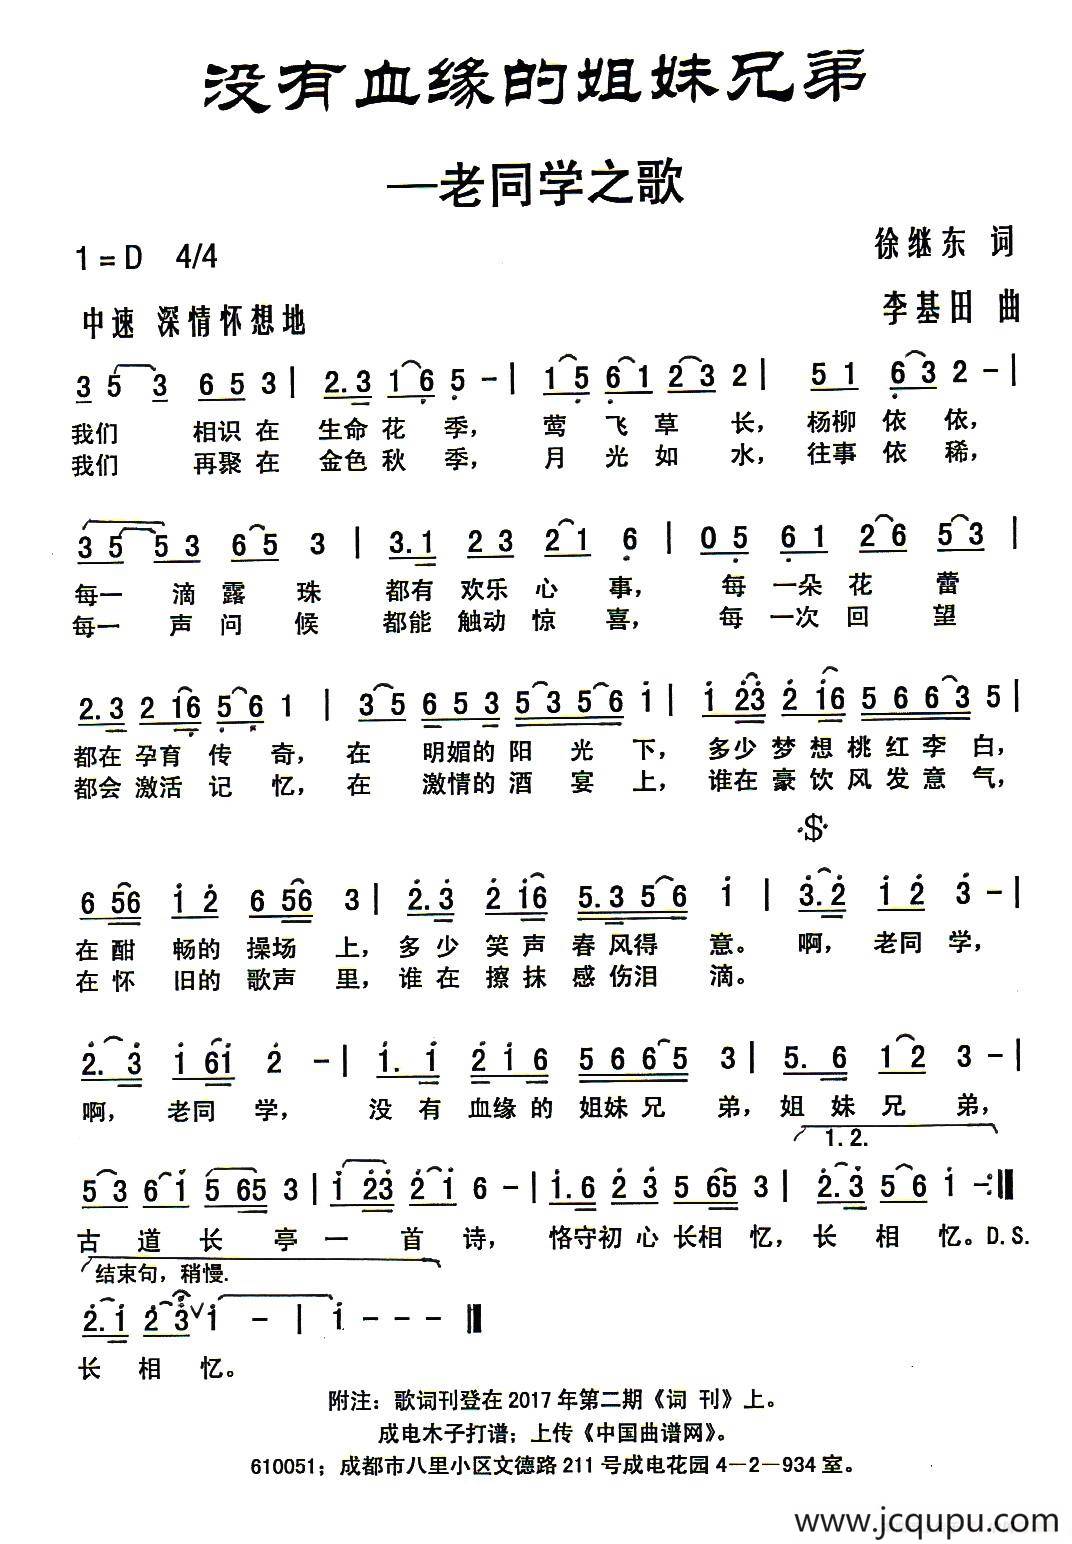 没有血缘的姐妹兄弟
—老同学之歌
1=D 4/4
徐继东 词
中速 深情怀想地
李基田 曲
3 5 3 6 5 3 | 2.3 1 6 5 - | 1 5 6 1 2 3 2 | 5 1 6 3 2 - |
我们 相识在 生命花 季， 莺 飞 草 长， 杨柳 依 依，
我们 再聚在 金色秋 季， 月 光 如 水， 往事 依 稀，
3 5 5 3 6 5 3 | 3.1 2 3 2 1 6 | 0 5 6 1 2 6 5 3 |
每一 滴 露 珠 都有 欢乐 心 事， 每 一朵 花 蕾
每一 声 问 候 都能 触动 惊 喜， 每 一次 回 望
2.3 2 16 5 6 1 | 3 5 6 5 3 5 3 5 6 i | i 23 2 i6 5 6 6 3 5 |
都在 孕育 传 奇， 在 明媚的 阳 光 下， 多少 梦 想 桃 红 李 白，
都会 激活 记 忆， 在 激情的 酒 宴 上， 谁在 豪 饮 风 发 意 气，
𝄋
6 56 i 2 6 56 3 | 2.3 2 i6 5.3 5 6 i | 3.2 i 2 3 - |
在 酣 畅的 操场 上， 多 少 笑 声 春 风得 意。 啊， 老同 学，
在 怀 旧的 歌声 里， 谁 在 擦 抹 感 伤泪 滴。
2. 3 i 6i 2 - | i. i 2 i 6 5 6 6 5 3 | 5. 6 1 2 3 - |
啊， 老同 学， 没 有 血缘 的 姐妹 兄 弟， 姐 妹 兄 弟，
1. 2.
5 3 6 i 5 65 3 | i 23 2 i 6 - | i.6 2 3 5 65 3 | 2.3 5 6 i - :||
古 道 长 亭 一 首 诗， 恪守初 心 长相 忆， 长 相 忆。D.S.
结束句，稍慢.
2.i 2 3 ∨ i - | i - - - ||
长 相 忆。
附注：歌词刊登在2017年第二期《词 刊》上。
成电木子打谱；上传《中国曲谱网》。
610051；成都市八里小区文德路211号成电花园4－2－934室。
www.jcqupu.com